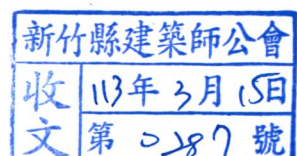 新竹縣建築師公會
收文
113年3月15日
第0287號